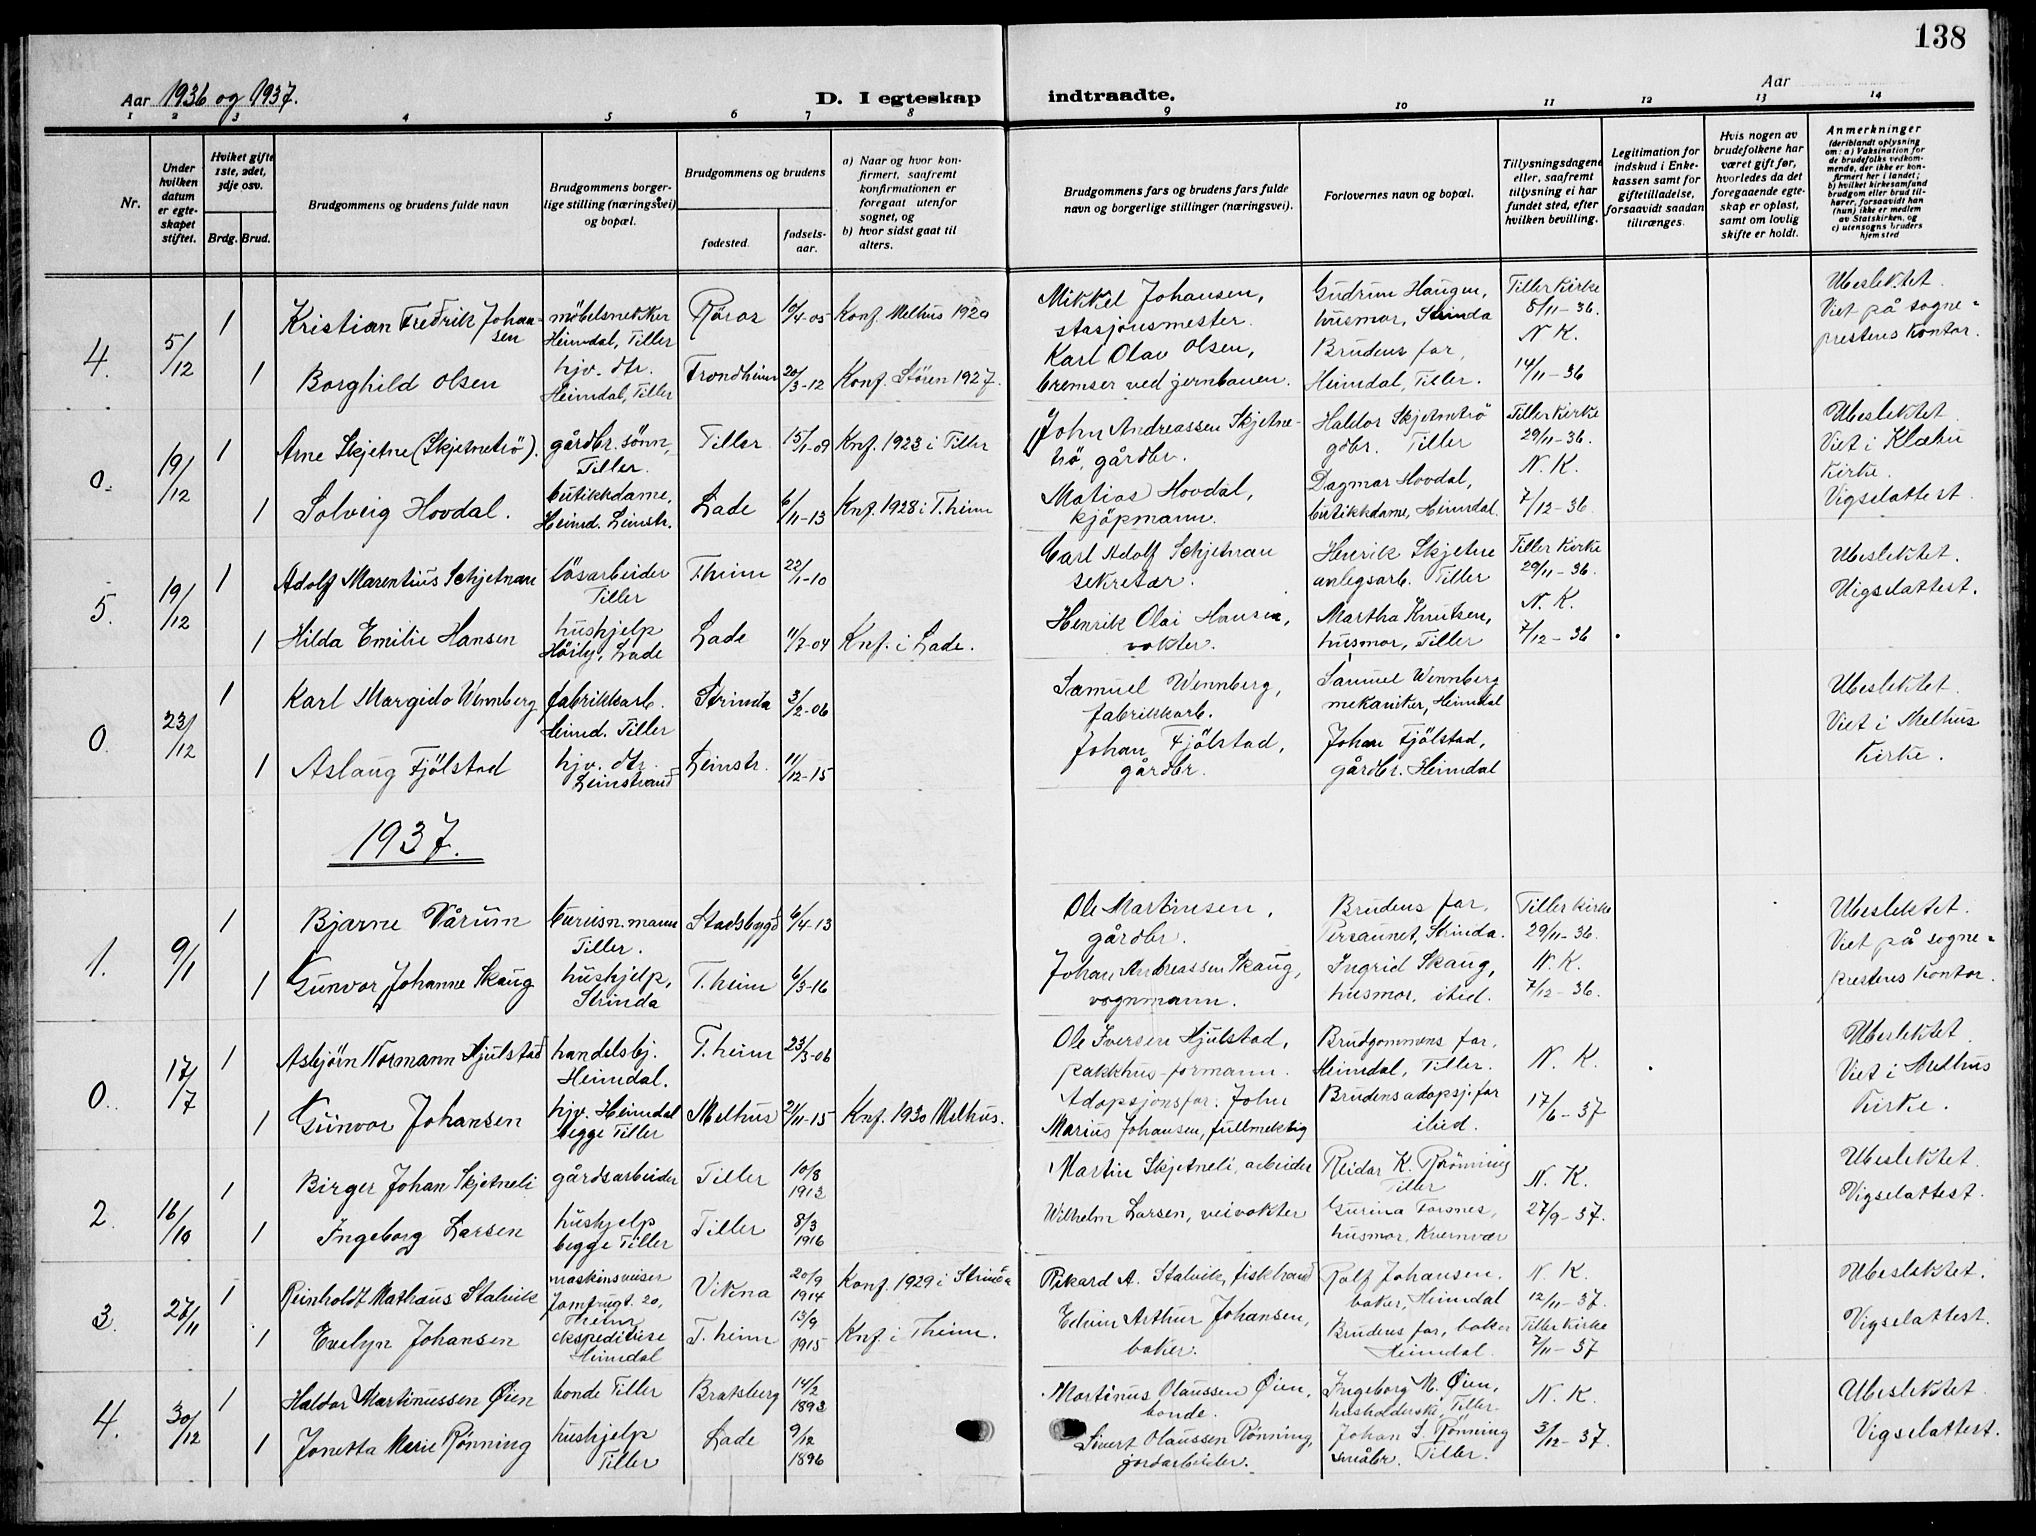 138
Aar 1936 og 1937.
D. I egteskap indtraadte.
Aar
1 2 3 4 5 6 7 8 9 10 11 12 13 14
Nr.
Under hvilken datum er egteskapet stiftet.
Hvilket gifte 1ste, 2det, 3dje osv.
Brdg. Brud.
Brudgommens og brudens fulde navn
Brudgommens borgerlige stilling (næringsvei) og bopæl.
Brudgommens og brudens
fødested.
fødselsaar.
a) Naar og hvor konfirmert, saafremt konfirmationen er foregaat utenfor sognet, og
b) hvor sidst gaat til alters.
Brudgommens fars og brudens fars fulde navn og borgerlige stillinger (næringsvei).
Forlovernes navn og bopæl.
Tillysningsdagene eller, saafremt tillysning ei har fundet sted, efter hvilken bevilling.
Legitimation for indskud i Enkekassen samt for giftetilladelse, forsaavidt saadan tiltrænges.
Hvis nogen av brudefolkene har været gift før, hvorledes da det foregaaende egteskap er opløst, samt om lovlig skifte er holdt.
Anmerkninger
(deriblandt oplysning om: a) Vaksination for de brudefolks vedkommende, der ikke er konfirmert her i landet;
b) hvilket kirkesamfund brudgom eller brud tilhører, forsaavidt han (hun) ikke er medlem av Statskirken, og
c) utensogns bruders hjemsted
4. 5/12 1 Kristian Fredrik Johansen møbelsnekker Heimdal, Tiller Röros 10/4-05 Konf. Melhus 1920 Mikkel Johansen, stasjonsmester. Gudrun Haugen, husmor, Strinda Tiller Kirke 8/11-36. N. K. Ubeslektet. Viet på sogneprestens Kontor.
1 Borghild Olsen hjv. dtr. Heimdal, Tiller Trondheim 20/3-12 Konf. Støren 1927. Karl Olav Olsen, bremser ved jernbanen. Brudens far, Heimdal, Tiller. 14/11-36
0. 19/12 1 Arne Skjetne (Skjetnetrö). gårdbr. sønn, Tiller. Tiller 15/1-09 Knf. 1923 i Tiller John Andreassen Skjetnetrö, gårdbr. Haldor Skjetnetrö gdbr. Tiller Tiller Kirke 29/11-36. N. K. Ubeslektet Viet i Klæbu Kirke. Vigselattest
1 Solveig Hovdal. butikkdame, Heimd. Leinstr. Lade 6/11-13 Knf. 1928 i T.heim Matias Hovdal, kjöpmann. Dagmar Hovdal, butikkdame, Heimdal. 7/12-36.
5. 19/12 1 Adolf Marentius Schjetnan løsarbeider Tiller T.heim 22/1-10 Carl Adolf Schjetnan sekretær. Henrik Skjetne anlegsarb. Tiller Tiller Kirke 29/11-36. N. K. Ubeslektet. Vigselattest.
1 Hilda Emilie Hansen hushjelp Lade Lade 11/7-04 Knf. i Lade. Henrik Olai Hansen, vokter. Martha Knutsen, husmor, Tiller 7/12-36
0. 23/12 1 Karl Margido Wennberg fabrikkarb. Heimd. Tiller Strinda 3/2-06 Samuel Wennberg, fabrikkarb. Samuel Wennberg mekaniker, Heimdal Ubeslektet. Viet i Melhus Kirke.
1 Aslaug Fjölstad hjv. dtr. Leinstrand Leinstr. 11/12-15 Johan Fjölstad, gårdbr. Johan Fjölstad, gårdbr. Heimdal
1937.
1. 9/1 1 Bjarne Vårum Tiller. Stadsbygd 6/4-13 Ole Martinsen, gårdbr. Brudens far, Persaunet, Strinda. Tiller Kirke 29/11-36. N. K. Ubeslektet. Viet på sogneprestens Kontor.
1 Gunvor Johanne Skaug hushjelp, Strinda T.heim 6/3-16 Johan Andreassen Skaug, vognmann. Ingrid Skaug, husmor, ibid. 7/12-36.
0. 17/17 1 Asbjörn Normann Hjulstad handelsbj. Heimdal. T.heim 23/3-06 Ole Iversen Hjulstad, pakkhus-formann. Brudgommens far, Heimdal, Tiller. N. K. Ubeslektet Viet i Melhus Kirke.
1 Gunvor Johansen hjv. Heimdal begge Tiller Melhus 2/11-15 Knf. 1930 Melhus. Adopsjonsfar: John Marius Johansen, fullmektig Brudens adopsj. far ibid. 17/6-37
2. 16/10 1 Birger Johan Skjetneli gårdsarbeider Tiller 10/8 1913 Martin Skjetneli, arbeider Reidar K. Rönning Tiller N. K. Ubeslektet. Vigselattest.
1 Ingeborg Larsen hushjelp begge Tiller Tiller 8/3 1916 Wilhelm Larsen, veivokter Gurina Forsnes, husmor, Kvernvær 27/9-37.
3. 27/11 1 Reinholdt Mathæus Stalvik Jomfrugt. 20, T.heim Vikna 20/9 1914 Konf. 1929 i Strinda Rikard A. Stalvik, fiskhand Rolf Johansen. baker, Heimdal N. K. 12/11-37. Ubeslektet. Vigselattest.
1 Evelyn Johansen ekspeditrise Heimdal T.heim 13/9 1915 Knf. i T.heim. Edvin Arthur Johansen, baker. Brudens far, baker Heimdal. Tiller Kirke 7/11-37
4. 30/12 1 Haldor Martinussen Øien bonde Tiller Bratsberg 14/2 1893 Martinus Olaussen Øien, bonde. Ingeborg M. Øien, husholderske, Tiller N. K. Ubeslektet Vigselattest.
1 Jonetta Marie Rønning hushjelp Tiller Lade 9/12 1896 Sivert Olaussen Rönning, jordarbeider. Johan S. Rönning småbr. Tiller. 3/12-37.